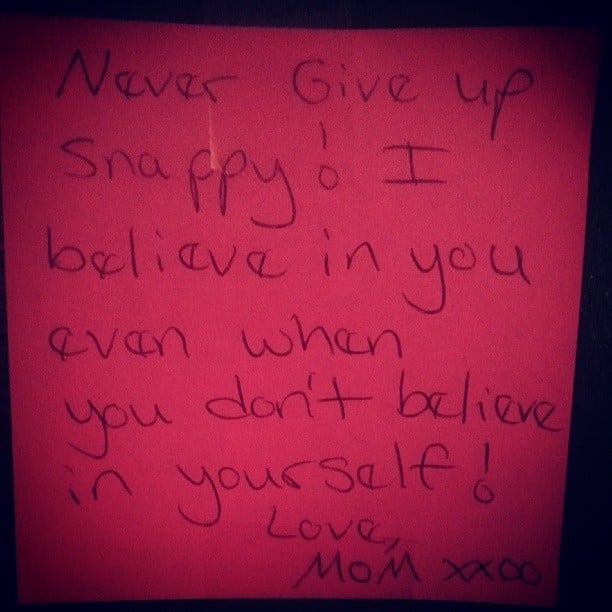 Never Give up
Snappy! I
believe in you
even when
you don't believe
in yourself!
Love,
MOM xxoo